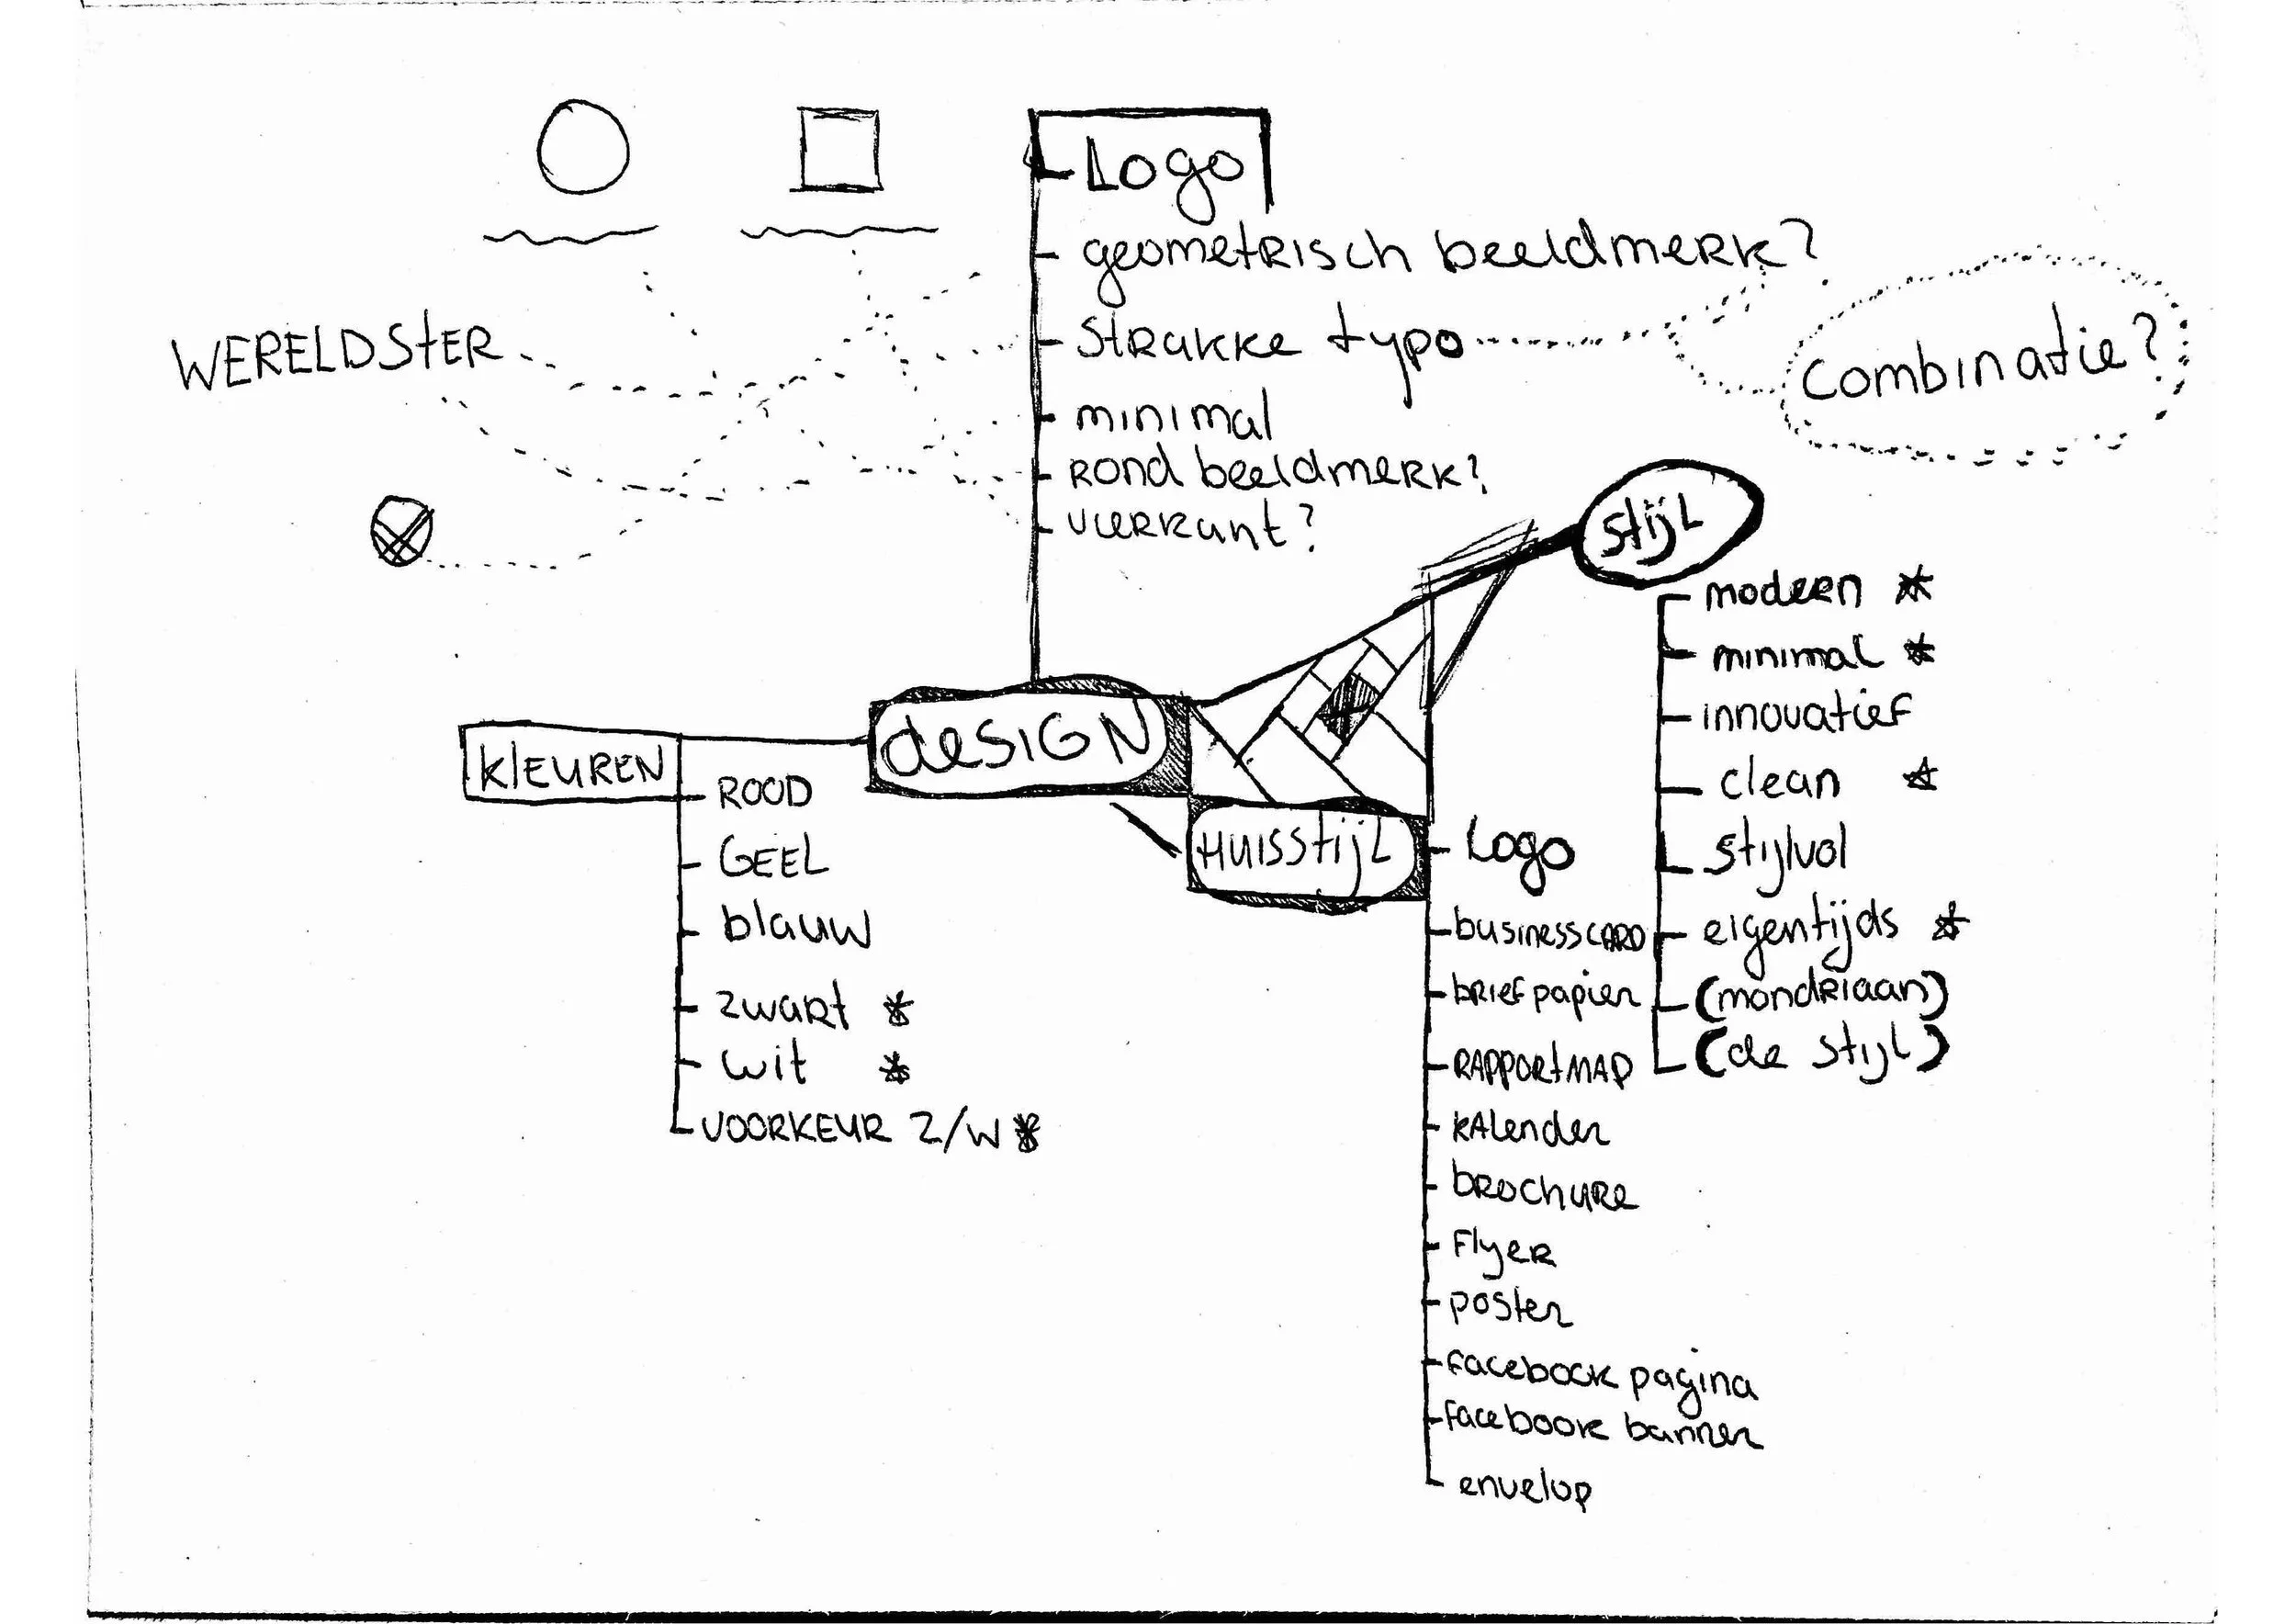 Logo
geometrisch beeldmerk?
strakke typo
minimal
rond beeldmerk?
vierkant?
Combinatie?
WERELDSTER
stijl
modern *
minimal *
innovatief
clean *
stijlvol
eigentijds *
(mondriaan)
(de stijl)
design
KLEUREN
ROOD
GEEL
blauw
zwart *
wit *
VOORKEUR Z/W *
HUISSTIJL
Logo
businesscard
briefpapier
RAPPORTMAP
kalender
brochure
Flyer
poster
facebook pagina
facebook banner
envelop